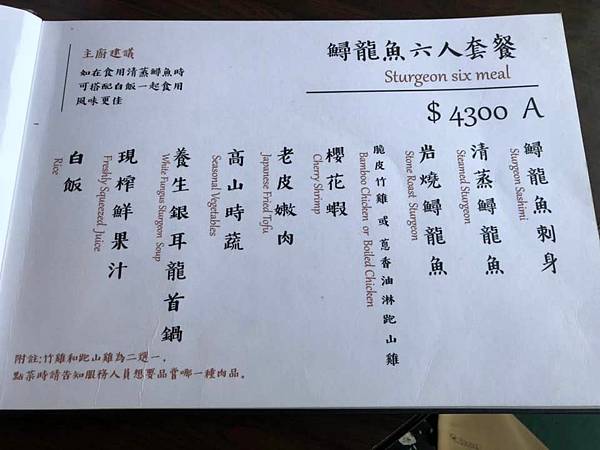 鱘龍魚六人套餐
Sturgeon six meal
$ 4300 A
主廚建議
如在食用清蒸鱘魚時
可搭配白飯一起食用
風味更佳
鱘龍魚刺身
Sturgeon Sashimi
清蒸鱘龍魚
Steamed Sturgeon
岩燒鱘龍魚
Stone Roast Sturgeon
脆皮竹雞 或 蔥香油淋跑山雞
Bamboo Chicken or Boiled Chicken
櫻花蝦
Cherry Shrimp
老皮嫩肉
Japanese Fried Tofu
高山時蔬
Seasonal Vegetables
養生銀耳龍首鍋
White Fungus Sturgeon Soup
現榨鮮果汁
Freshly Squeezed Juice
白飯
Rice
附註:竹雞和跑山雞為二選一,
點菜時請告知服務人員想要品嘗哪一種肉品。